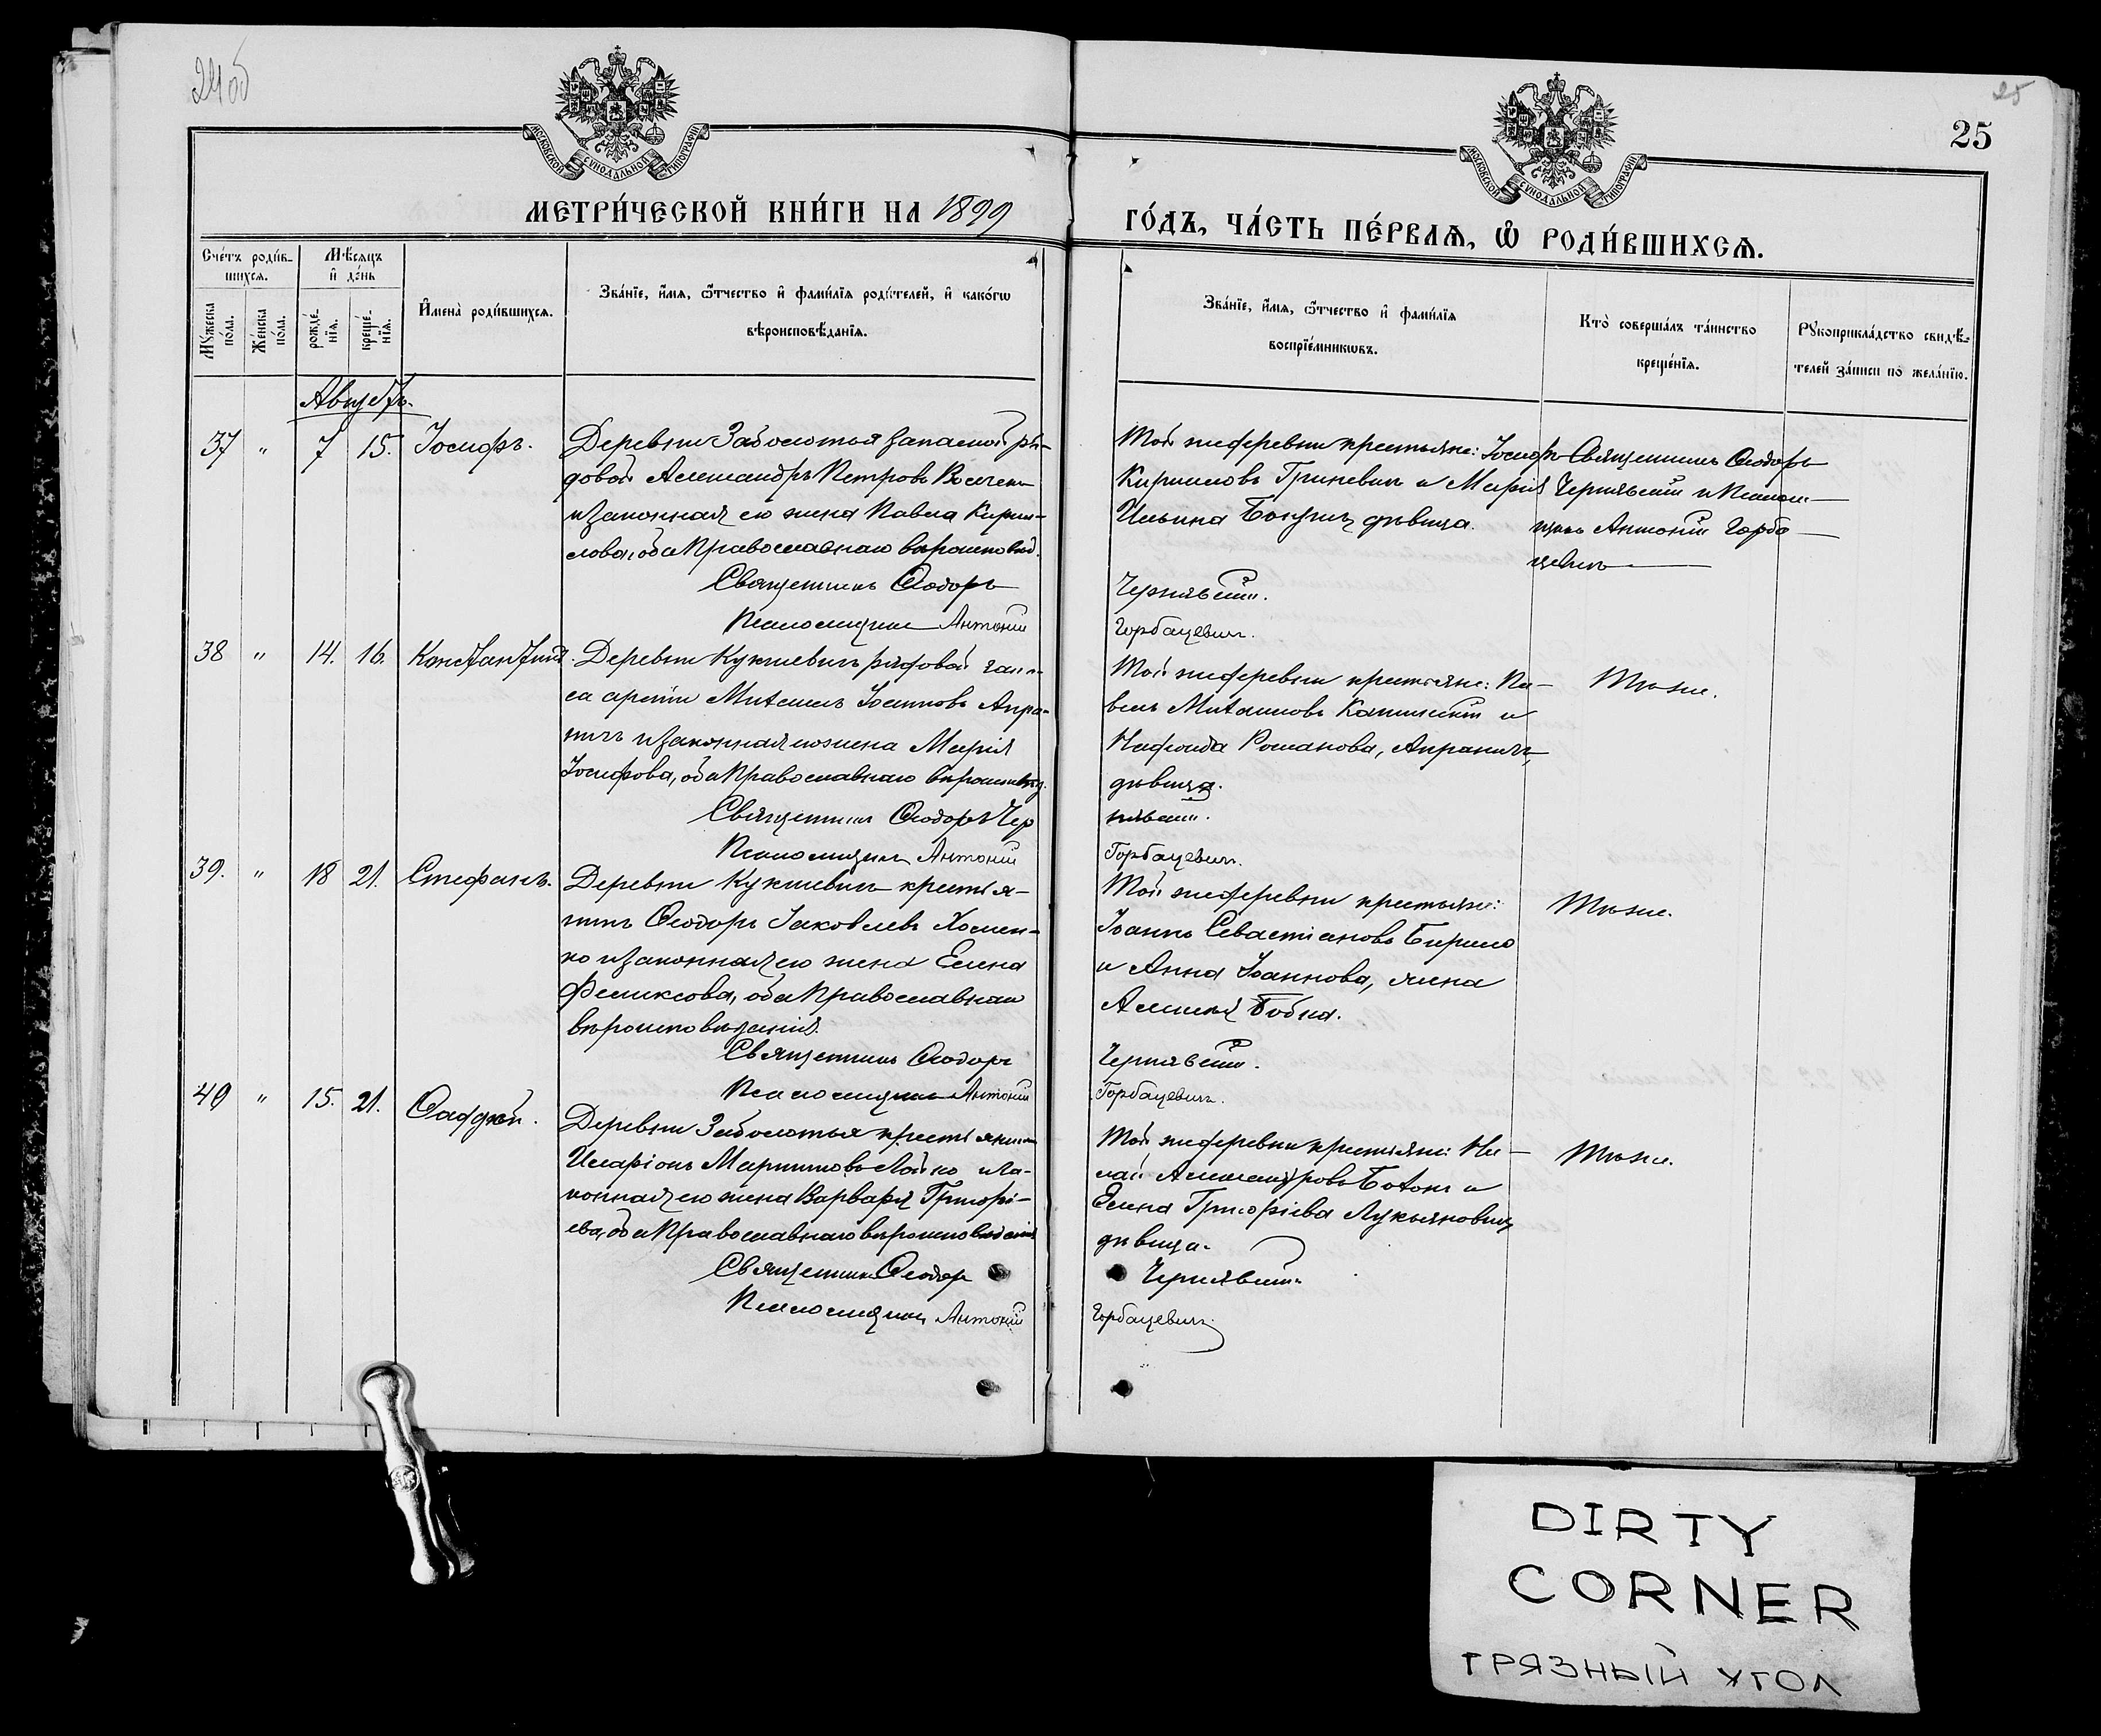 24об
25
25
МОСКОВСКОЙ СѴНОДАЛЬНОЙ ТИПОГРАФІИ
МОСКОВСКОЙ СѴНОДАЛЬНОЙ ТИПОГРАФІИ
МЕТРИ́ЧЕСКОЙ КНИ́ГИ НА 1899
ГО́ДЪ, ЧА́СТЬ ПЕ́РВАѦ, Ѽ РОДИ́ВШИХСѦ.
Сче́тъ роди́в-
шихсѧ.
Мѣ́сѧцъ
и҆ де́нь
Мꙋ́жеска
по́ла.
Же́нска
по́ла.
рожде́-
нїѧ.
креще́-
нїѧ.
И҆мена̀ роди́вшихсѧ.
Зва́нїе, и҆́мѧ, ѻ҆́тчество и҆ фами́лїѧ роди́телей, и҆ како́гѡ
вѣроисповѣ́данїѧ.
Зва́нїе, и҆́мѧ, ѻ҆́тчество и҆ фами́лїѧ
воспрїе́мникѡвъ.
Кто̀ соверша́лъ та́инство
креще́нїѧ.
Рꙋкоприкла́дство свидѣ́-
телей за́писи по жела́нїю.
Августъ.
37 " 7 15. Іосифъ.
Деревни Заболотья запасной ря-
довой Александръ Петровъ
и законная его жена Павла Кирил-
лова, оба Православнаго вѣроисповѣд.
Священникъ Ѳеодоръ
Псаломщикъ Антоній
Той же деревни крестьяне: Іосифъ
Кирилловъ Гриневичъ и Марія
Ильина дѣвица.
Чернявскій.
Горбацевичъ.
Священникъ Ѳеодоръ
Чернявскій и Псалом-
щикъ Антоній Горба-
цевичъ
38 " 14. 16. Константинъ.
Деревни Кукшевичъ рядовой запа-
са арміи Михаилъ Іоанновъ Апра-
ничъ и законная его жена Марія
Іосифова, оба Православнаго вѣроисповѣд.
Священникъ Ѳеодоръ Чер
Псаломщикъ Антоній
Той же деревни крестьяне: Па-
велъ Михаиловъ и
Романова, Апраничъ,
дѣвица.
нявскій.
Горбацевичъ.
Тѣ же.
39. " 18 21. Стефанъ.
Деревни Кукшевичъ крестья-
нинъ Ѳеодоръ Іаковлевъ Хомен-
ко и законная его жена Елена
Феликсова, оба Православнаго
вѣроисповѣданія.
Священникъ Ѳеодоръ
Псаломщикъ Антоній
Той же деревни крестьяне:
Іоаннъ Севастіановъ Бирило
и Анна Іоаннова, жена
Алексія Бобка.
Чернявскій.
Горбацевичъ.
Тѣ же.
40 " 15. 21. Ѳаддей.
Деревни Заболотья крестьянинъ
Иларіонъ Мартиновъ Лойко и за-
конная его жена Варвара Григорі-
ева, оба Православнаго вѣроисповѣданія
Священникъ Ѳеодоръ
Псаломщикъ Антоній
Той же деревни крестьяне: Ни-
лай Александровъ и
Елена Григоріева Лукьяновичъ
дѣвица.
Чернявскій
Горбацевичъ.
Тѣ же.
DIRTY
CORNER
ГРЯЗНЫЙ УГОЛ